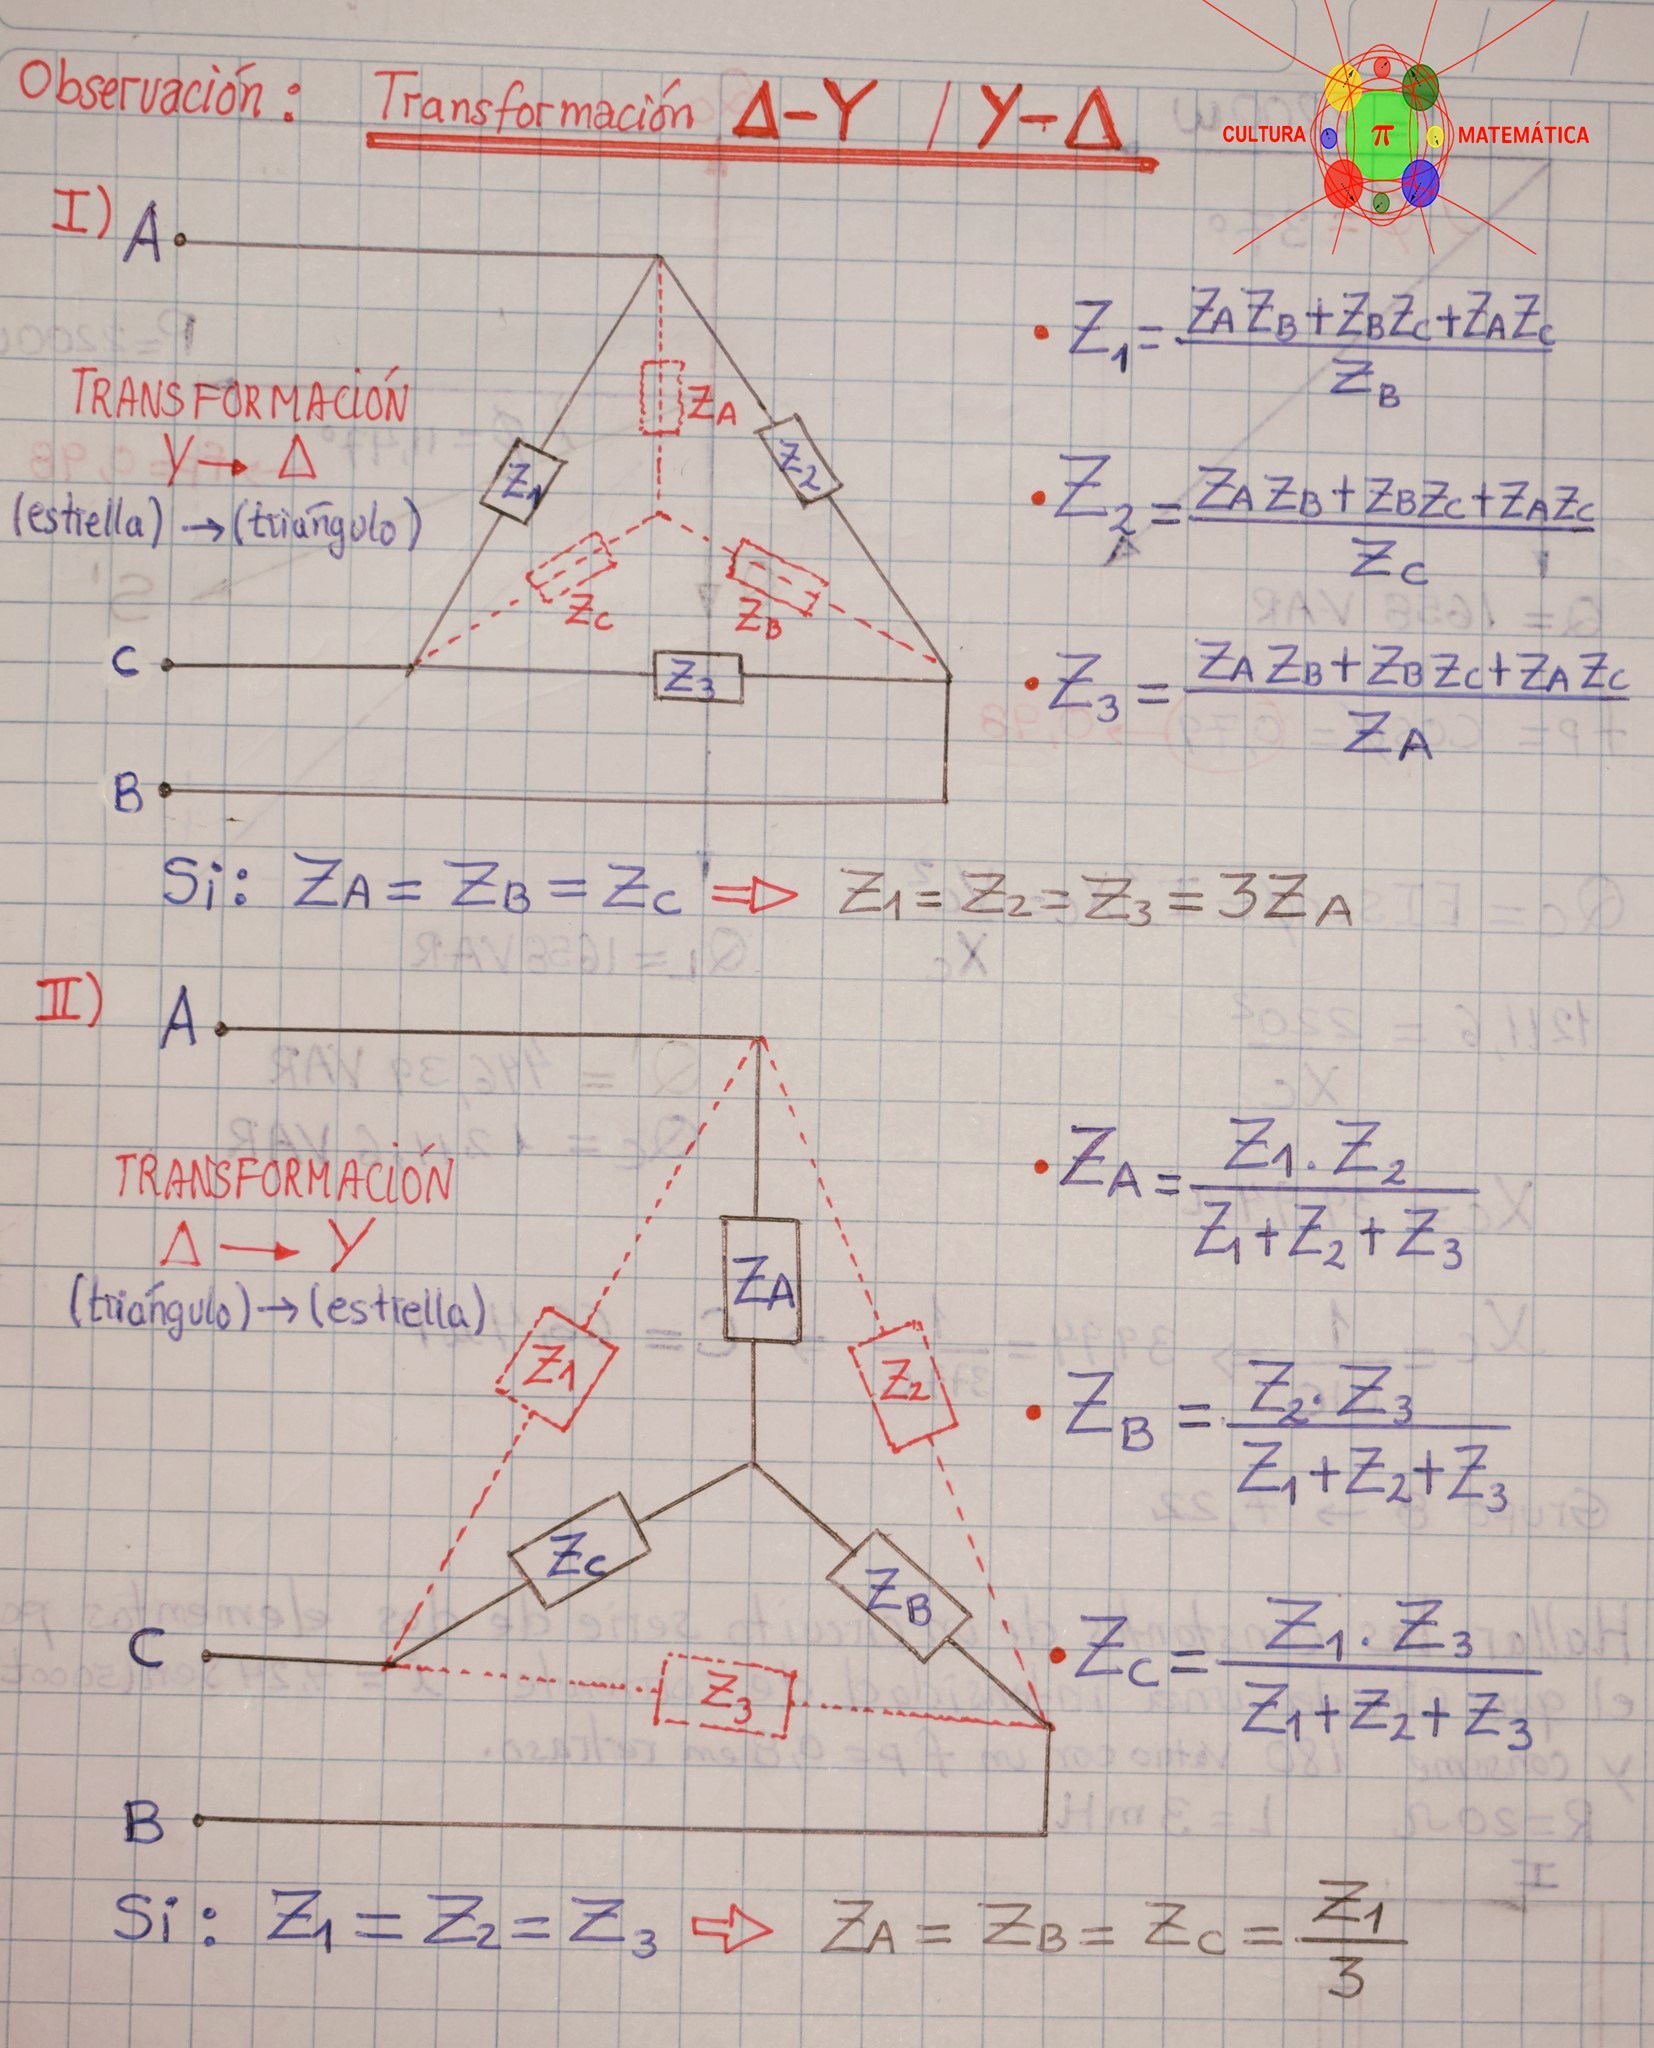 Observación: Transformación Δ-Y / Y-Δ
CULTURA π MATEMÁTICA
I) A
• Z1 = ZA ZB + ZB ZC + ZA ZC
ZB
TRANSFORMACIÓN
Y → Δ
(estrella) → (triángulo)
ZA
Z1
Z2
• Z2 = ZA ZB + ZB ZC + ZA ZC
ZC
ZC
ZB
C
Z3
• Z3 = ZA ZB + ZB ZC + ZA ZC
ZA
B
Si: ZA = ZB = ZC ⇒ Z1 = Z2 = Z3 = 3ZA
II) A
TRANSFORMACIÓN
Δ → Y
(triángulo) → (estrella)
• ZA = Z1 . Z2
Z1 + Z2 + Z3
ZA
Z1
Z2
• ZB = Z2 . Z3
Z1 + Z2 + Z3
ZC
ZB
C
Z3
• ZC = Z1 . Z3
Z1 + Z2 + Z3
B
Si: Z1 = Z2 = Z3 ⇒ ZA = ZB = ZC = Z1
3